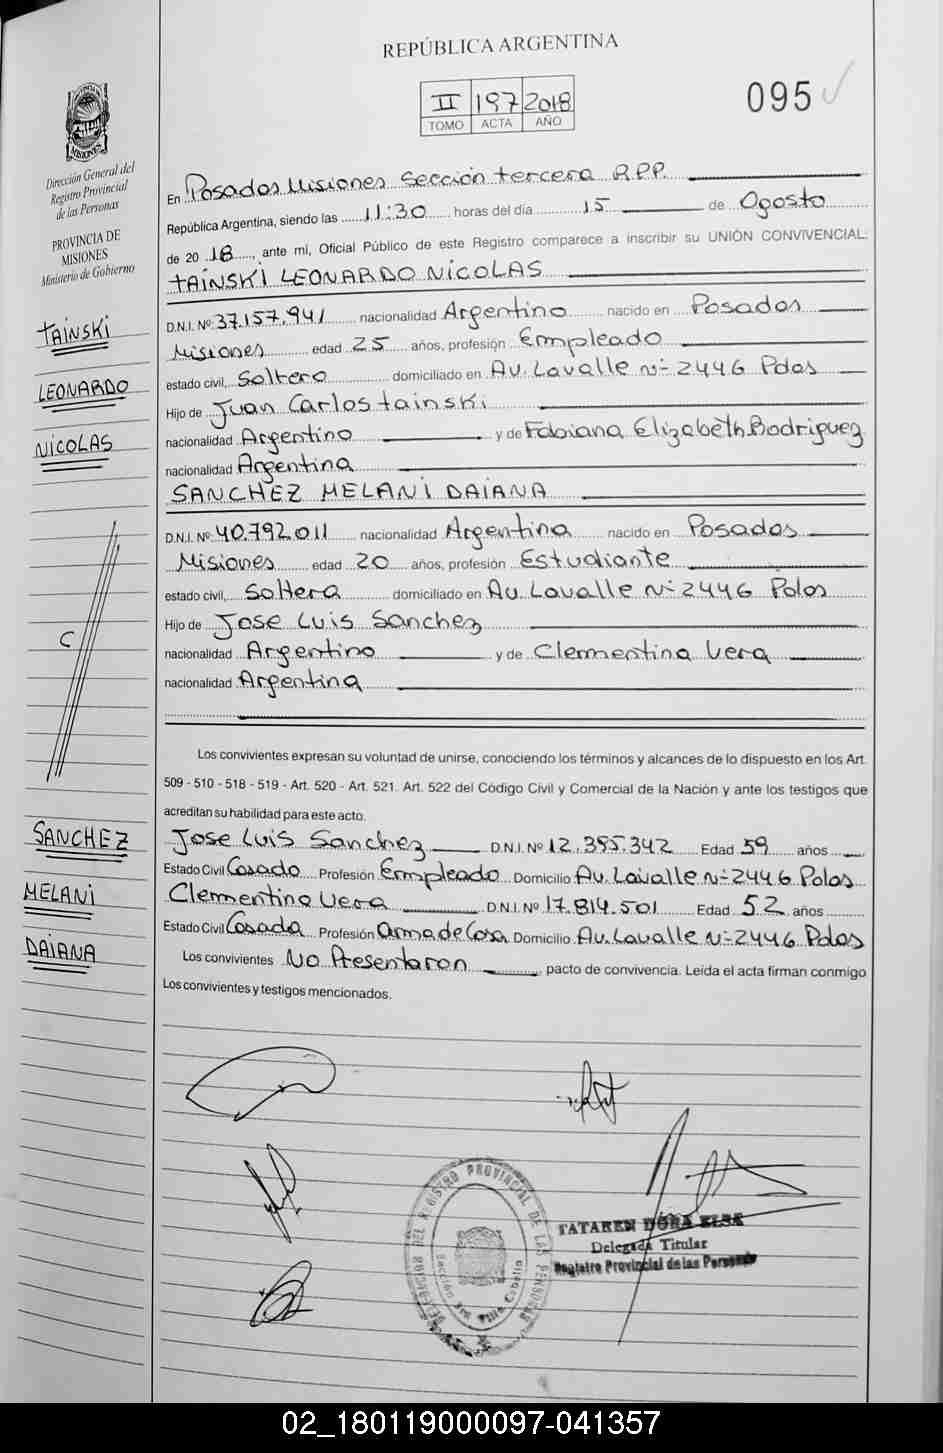 REPÚBLICA ARGENTINA
II 197 2018
TOMO ACTA AÑO
095
MISIONES
Dirección General del
Registro Provincial
de las Personas
PROVINCIA DE
MISIONES
Ministerio de Gobierno
TAINSKI
LEONARDO
NICOLAS
C
SANCHEZ
MELANI
DAIANA
En Posadas Misiones Sección tercera R.P.P.
República Argentina, siendo las 11:30 horas del día 15 de Agosto
de 20 18, ante mí, Oficial Público de este Registro comparece a inscribir su UNIÓN CONVIVENCIAL:
TAINSKI LEONARDO NICOLAS
D.N.I. Nº 37.157.941 nacionalidad Argentino nacido en Posadas
Misiones edad 25 años, profesión Empleado
estado civil, Soltero domiciliado en Av. Lavalle Nº 2446 Pdas
Hijo de Juan Carlos tainski
nacionalidad Argentino y de Fabiana Elizabeth Rodriguez
nacionalidad Argentina
SANCHEZ MELANI DAIANA
D.N.I. Nº 40.792.011 nacionalidad Argentina nacido en Posadas
Misiones edad 20 años, profesión Estudiante
estado civil, Soltera domiciliado en Av. Lavalle Nº 2446 Pdas
Hijo de Jose Luis Sanchez
nacionalidad Argentino y de Clementina Vera
nacionalidad Argentina
Los convivientes expresan su voluntad de unirse, conociendo los términos y alcances de lo dispuesto en los Art.
509 - 510 - 518 - 519 - Art. 520 - Art. 521. Art. 522 del Código Civil y Comercial de la Nación y ante los testigos que
acreditan su habilidad para este acto.
Jose Luis Sanchez D.N.I. Nº 12.395.342 Edad 59 años
Estado Civil Casado Profesión Empleado Domicilio Av. Lavalle Nº 2446 Pdas
Clementina Vera D.N.I. Nº 17.814.501 Edad 52 años
Estado Civil Casada Profesión ama de Casa Domicilio Av. Lavalle Nº 2446 Pdas
Los convivientes No Presentaron pacto de convivencia. Leída el acta firman conmigo
Los convivientes y testigos mencionados.
DEL REGISTRO PROVINCIAL DE LAS PERSONAS
Sección 3ra. Villa Cabello
TATAREN DORA ELSA
Delegada Titular
Registro Provincial de las Personas
02_180119000097-041357